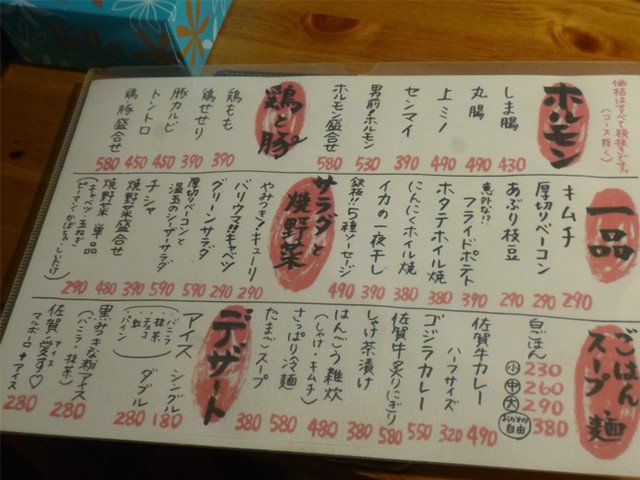 価格はすべて税抜きです。
(コース除く)
ホルモン
しま腸 430
丸腸 490
上ミノ 490
センマイ 390
男前!ホルモン 530
ホルモン盛合せ 580
鶏と豚
鶏もも 390
鶏せせり 390
豚カルビ 450
トントロ 450
鶏豚盛合せ 580
一品
キムチ 290
厚切りベーコン 290
あぶり枝豆 290
意外な!? フライドポテト 390
ホタテホイル焼 380
にんにくホイル焼 380
イカの一夜干し 390
鉄板!!5種ソーセージ 490
サラダと焼野菜
やみつき!キューリ 290
バリウマ!!キャベツ 290
グリーンサラダ 490
厚切りベーコンと温玉のシーザーサラダ 590
チシャ 390
焼野菜盛合せ 480
焼野菜 単品 290
(キャベツ・玉ねぎ・ピーマン・かぼちゃ・しいたけ)
ごはん スープ 麺
白ごはん
小 230
中 260
大 290
おかわり自由 380
佐賀牛カレー 490
ハーフサイズ 320
ゴジラカレー 550
佐賀牛炙りにぎり 580
しゃけ茶漬け 380
はんごう雑炊 480
(しゃけ・キムチ)
さっぱり冷麺 580
たまごスープ 380
デザート
アイス シングル 180
ダブル 280
(バニラ・抹茶・チョコ・パイン)
黒みつきな粉アイス 280
(バニラ・抹茶)
佐賀愛す♡ 280
アイス
マルボーロ+アイス